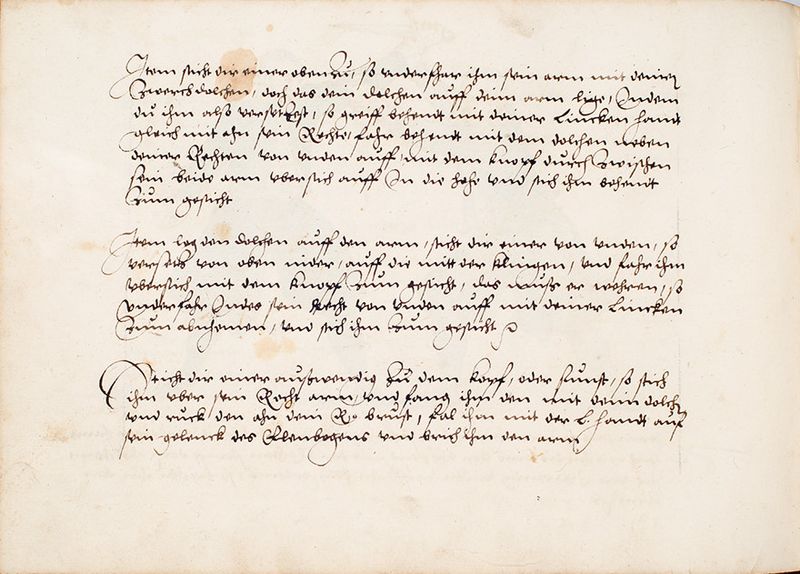 Item sticht dir einer oben Zu, so underfhar ihm sein arm mit deinem
Zwerch dolchen, doch das dein dolchen auff deim arm lige, Indem
du ihm also versetzest, so greiff behendt mit deiner Lincken handt
gleich mit ahn sein Rechte, fahr behendt mit dem dolchen neben
deiner Rechten von unden auff, mit dem knopf durch Zwischen
sein beide arm ubersich auff In die hohe und stich ihm behendt
Zum gesicht
Item leg den dolchen auff den arm, sticht dir einer von unden, so
versetz von oben nider, auff die mitt der klingen, und fahr ihm
ubersich mit dem knopf Zum gesicht, das muß er wehren, so
underfahr Indes sein Recht von unden auff mit deiner Lincken
Zum abnhemen, und stich ihm Zum gesicht
Sticht dir einer außwendig Zu dem kopf, oder sunst, so stich
ihm uber sein Recht arm, und fang ihm den mit deim dolchen
und ruck den ahn dein Re brust, fal ihm mit der L. handt auf
sein gelenck des Elenbogens und brich ihm den arm